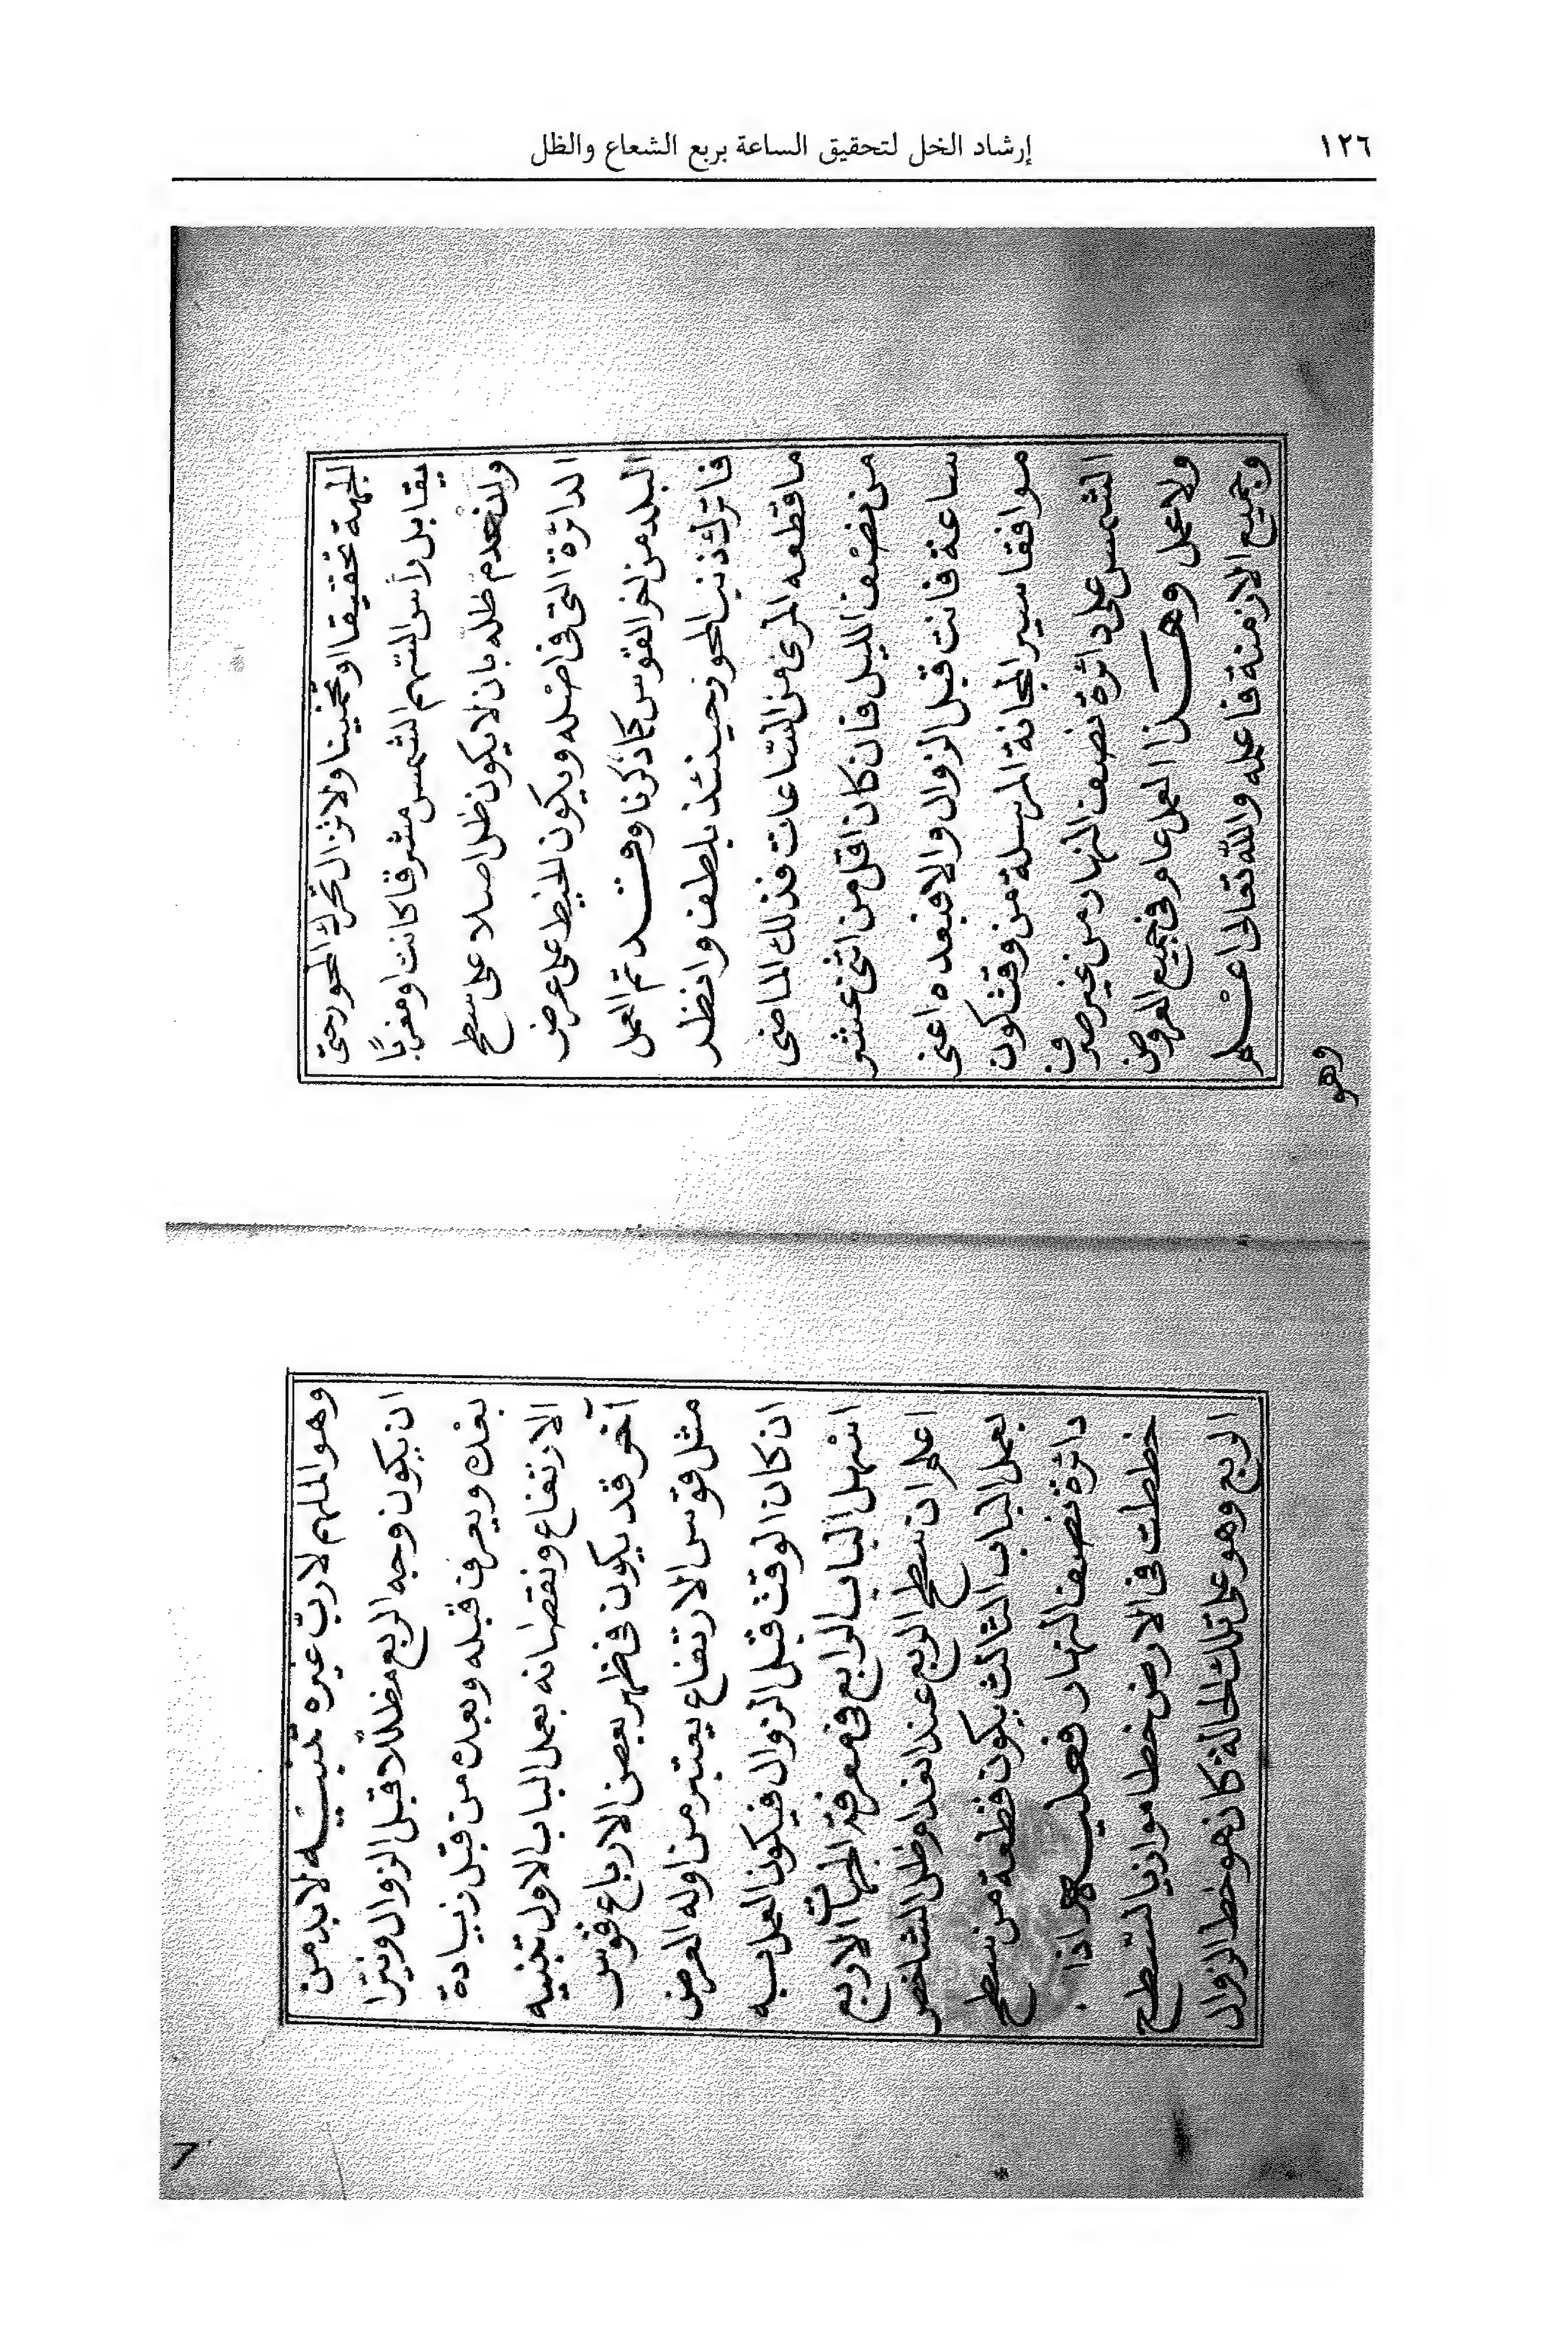 ١٢٦
إرشاد الخل لتحقيق الساعة بربع الشعاع والظل
الجهة تحقيقا او تخمينا ولا تزال تحرك المحور حتى
يقابل رأس السهم الشمس مشرقا كانت او مغربًا
وينعدم ظله بان لا يكون ظل اصلا على سطح
الدائرة التى فى اصله ويكون الخيط على عرض
البلد من اخر القوس كما ذكرنا وقد تم العمل
فاترك ذنب المحور حينئذ بلطف وانظر
ما قطعه المرى من الساعات فذلك الماضى
من نصف الليل فان كان اقل من اثنى عشر
ساعة فانت قبل الزوال والا فبعده اعنى
موافقا سير المجانة المرسلة من وقت كون
الشمس على دائرة نصف النهار من غير صرف
ولا عمل وهذا العمل عام فى جميع العروض
وجميع الازمنة فاعمله والله تعالى اعلم
وهو
وهو الملهم لا ربّ غيره تنبيه لا بد من
ان يكون وجه الربع مظللا قبل الزوال ونيرا
بعده ويعرف قبله وبعده من قبل زيادة
الارتفاع ونقصانه بعمل الباب الاول تنبيه
آخر قد يكون فى ظهر بعض الارباع قوس
مثل قوس الارتفاع يعتبر من اوله العرض
ان كان الوقت قبل الزوال فيكون العمل به
اسهل الباب الرابع فى معرفة الجهات الاربع
اعلم ان سطح الربع عند انعدام ظل الشاخص
بعمل الباب الثالث يكون قطعة من سطح
دائرة نصف النهار فعليه اذا
خططت فى الارض خطا موازيا لسطح
الربع وهو على تلك الحالة كان هو خط الزوال
٦